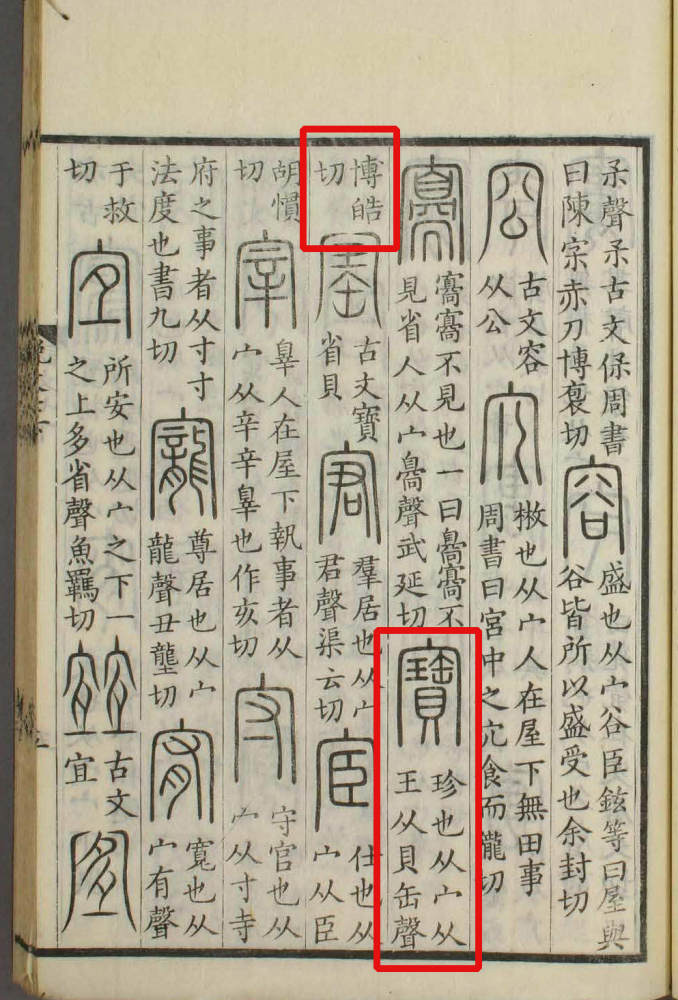 𣎼聲𣎼古文保周書
曰陳宲赤刀博襃切
容
盛也从宀谷臣鉉等曰屋與
谷皆所以盛受也余封切
㝐
古文容
从公
宂
㪔也从宀人在屋下無田事
周書曰宮中之宂食而隴切
㝰
㝰㝰不見也一曰㝰㝰不
見省人从宀臱聲武延切
寶
珍也从宀从
王从貝缶聲
博皓
切
𡧖
古文寶
省貝
宭
羣居也从宀
君聲渠云切
宦
仕也从
宀从臣
胡慣
切
宰
辠人在屋下執事者从
宀从辛辛辠也作亥切
守
守官也从
宀从寸寺
府之事者从寸寸
法度也書九切
寵
尊居也从宀
龍聲丑壟切
宥
寬也从
宀有聲
于救
切
宜
所安也从宀之下一
之上多省聲魚羈切
古文
宜